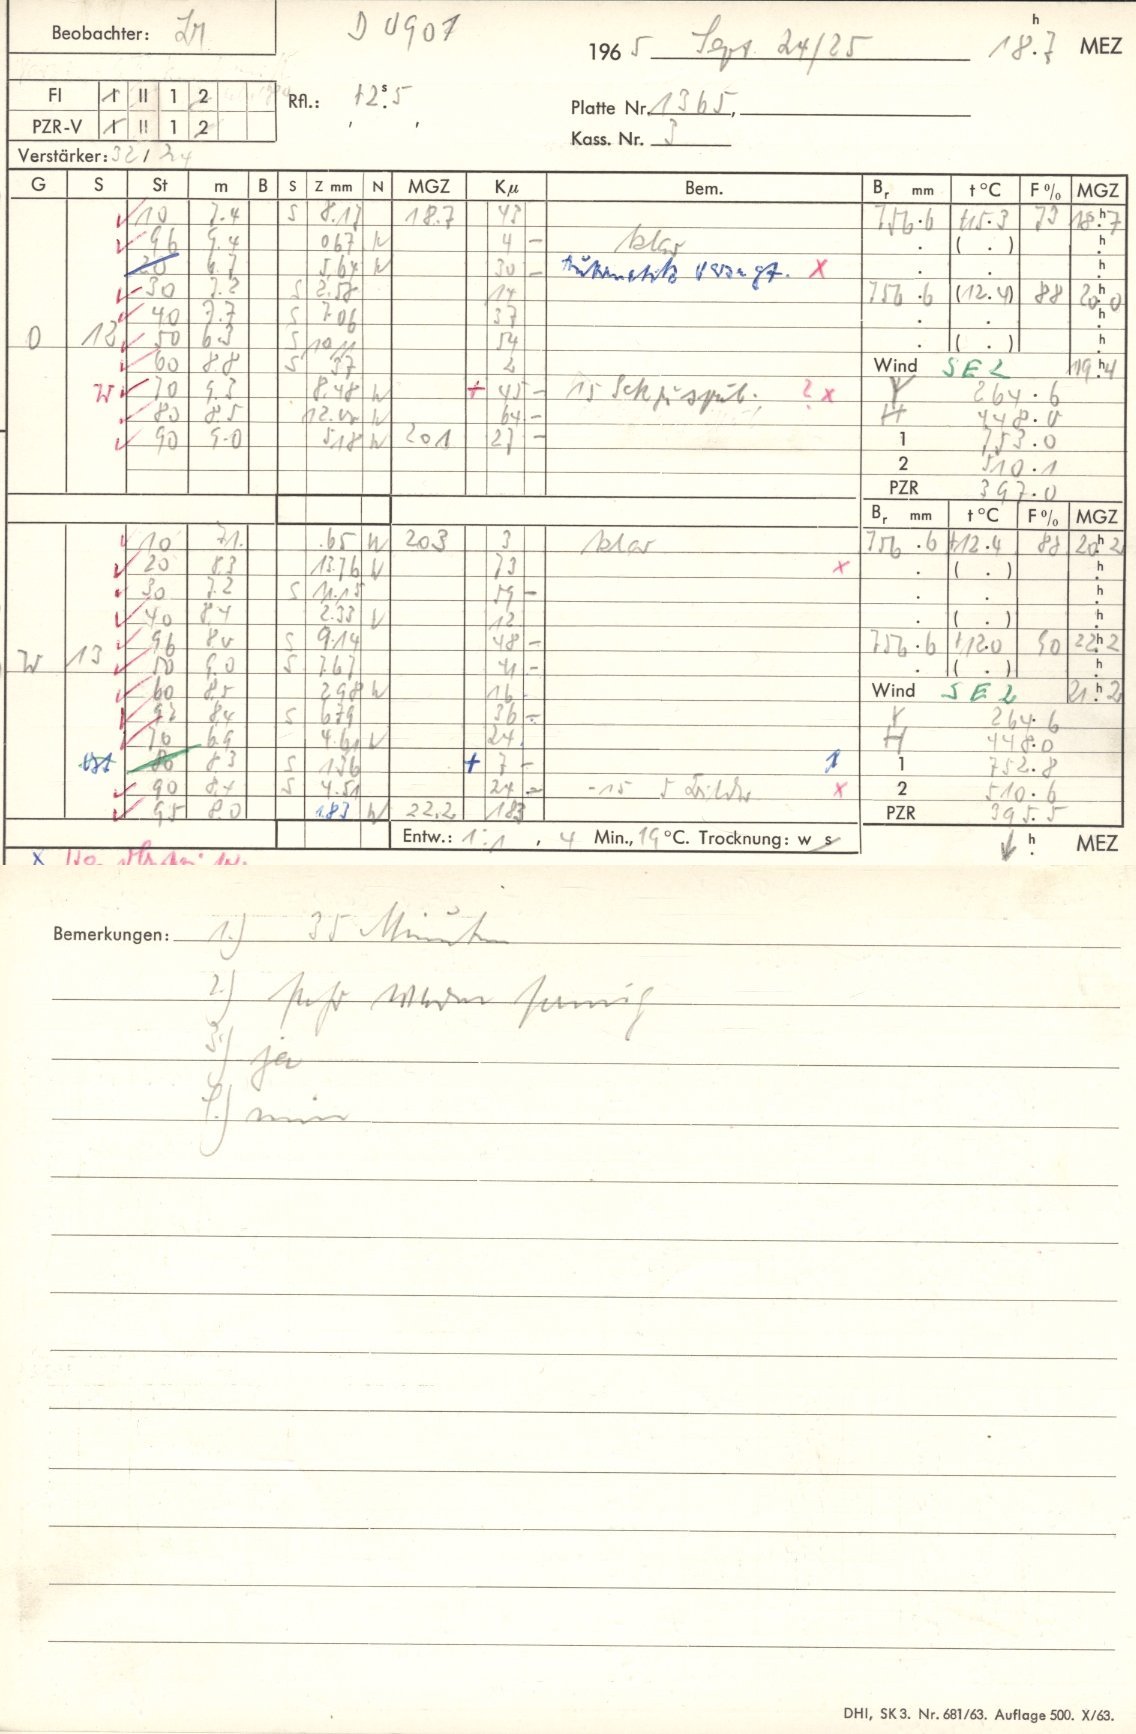 Beobachter:
D 0907
1965 Sept. 24/25 18.7 h MEZ
FI I II 1 2
Rfl.: +2.5 s
Platte Nr. 1365,
PZR-V I II 1 2
Kass. Nr. 3
Verstärker: 32/24
G S St m B S Z mm N MGZ Kµ Bem. Br mm t °C F % MGZ
10 7.4 S 8.17 18.7 43 756.6 +15.3 73 18.7 h
96 9.4 067 N 4 – klar ( . ) h
20 6.7 5,64 N 30 – versagt. x . . h
30 7.2 S 2.58 14 756.6 (12.4) 88 20.0 h
40 7.7 S 7.06 37 . . h
O 12 50 6.3 S 10.11 54 . ( . ) h
60 8.8 S 37 2 Wind SE 2 19.4 h
W 70 9.3 8.48 N + 45 – 15 Sek zu spät. ? x Y 264.6
80 8.5 N 64 – H 448.0
90 9.0 5.18 N 20.1 27 – 1 753.0
2 510.1
PZR 397.0
Br mm t °C F % MGZ
10 71. .65 N 203 3 klar 756.6 +12.4 88 20.2 h
20 8.3 13.76 N 73 x . ( . ) h
30 7.2 S 11.15 59 – . . h
40 8.4 2.33 N 12 . ( . ) h
96 8.0 S 9.14 48 – 756.6 +12.0 90 22.2 h
W 13 50 9.0 S 7.67 41 – . ( . ) h
60 8.5 2.98 N 16 Wind SE 2 21.2 h
92 8.4 S 6.79 36 – Y 264.6
70 6.9 4.61 N 24 H 448.0
80 8.3 S 1.36 + 7 – 1 1 752.8
90 8.4 S 4.51 24 – -15 5 Bilder x 2 510.6
95 8.0 1.83 N 22.2 183 PZR 395.5
Entw.: 1:1, 4 Min., 19 °C. Trocknung: w s h MEZ
x
Bemerkungen: 1.) 35 Minuten
2.)
3.) ja
4.) nein
DHI, SK 3. Nr. 681/63. Auflage 500. X/63.